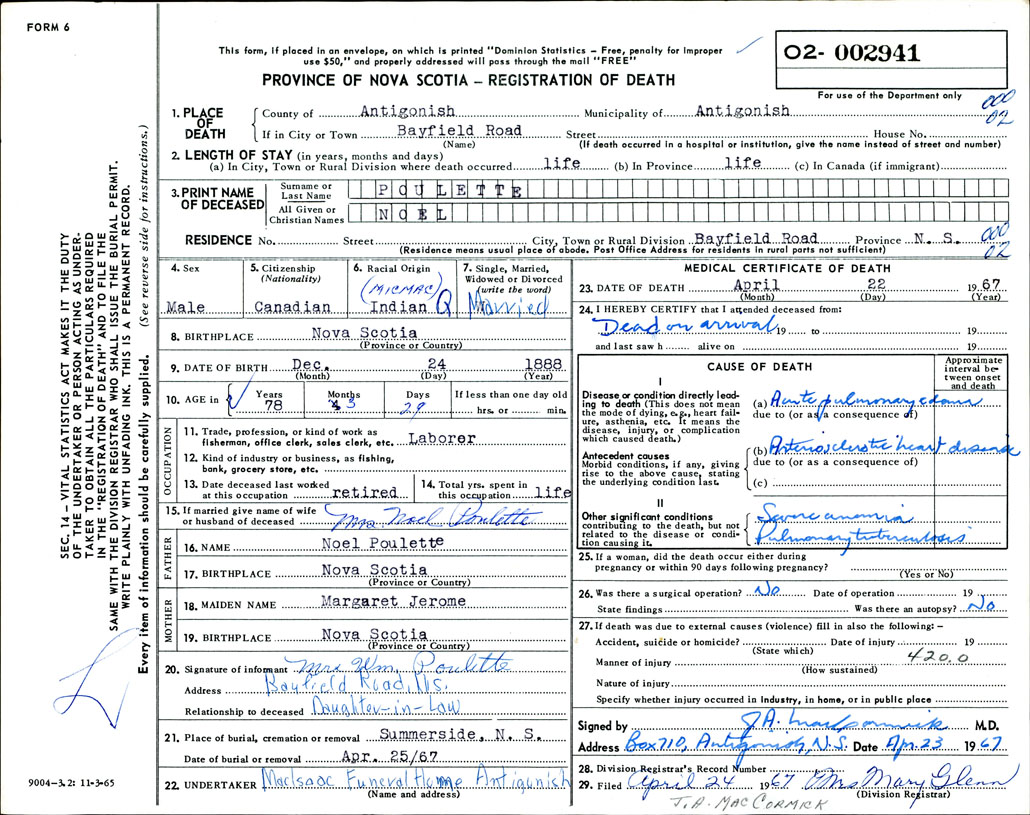 FORM 6
This form, if placed in an envelope, on which is printed "Dominion Statistics – Free, penalty for improper
use $50," and properly addressed will pass through the mail "FREE"
O2- 002941
For use of the Department only
PROVINCE OF NOVA SCOTIA – REGISTRATION OF DEATH
000
02
1. PLACE OF DEATH
County of Antigonish Municipality of Antigonish
If in City or Town Bayfield Road Street House No.
(Name) (If death occurred in a hospital or institution, give the name instead of street and number)
2. LENGTH OF STAY (in years, months and days)
(a) In City, Town or Rural Division where death occurred life (b) In Province life (c) In Canada (if immigrant)
3. PRINT NAME OF DECEASED
Surname or Last Name POULETTE
All Given or Christian Names NOEL
RESIDENCE No. Street City, Town or Rural Division Bayfield Road Province N. S.
000
02
(Residence means usual place of abode. Post Office Address for residents in rural parts not sufficient)
SEC. 14 – VITAL STATISTICS ACT MAKES IT THE DUTY
OF THE UNDERTAKER OR PERSON ACTING AS UNDER-
TAKER TO OBTAIN ALL THE PARTICULARS REQUIRED
IN THE "REGISTRATION OF DEATH" AND TO FILE THE
SAME WITH THE DIVISION REGISTRAR WHO SHALL ISSUE THE BURIAL PERMIT.
WRITE PLAINLY WITH UNFADING INK. THIS IS A PERMANENT RECORD.
Every item of information should be carefully supplied. (See reverse side for instructions.)
4. Sex
Male
5. Citizenship
(Nationality)
Canadian
6. Racial Origin
(MICMAC)
Indian
7. Single, Married,
Widowed or Divorced
(write the word)
Married
8. BIRTHPLACE Nova Scotia
(Province or Country)
9. DATE OF BIRTH Dec. 24 1888
(Month) (Day) (Year)
10. AGE in
Years 78
Months 3
Days 29
If less than one day old
hrs. or min.
OCCUPATION
11. Trade, profession, or kind of work as
fisherman, office clerk, sales clerk, etc. Laborer
12. Kind of industry or business, as fishing,
bank, grocery store, etc.
13. Date deceased last worked
at this occupation retired
14. Total yrs. spent in
this occupation life
15. If married give name of wife
or husband of deceased Mrs Noel Poulette
FATHER
16. NAME Noel Poulette
17. BIRTHPLACE Nova Scotia
(Province or Country)
MOTHER
18. MAIDEN NAME Margaret Jerome
19. BIRTHPLACE Nova Scotia
(Province or Country)
20. Signature of informant Mrs Wm. Poulette
Address Bayfield Road, N.S.
Relationship to deceased Daughter-in-Law
21. Place of burial, cremation or removal Summerside, N. S.
Date of burial or removal Apr. 25/67
22. UNDERTAKER MacIsaac Funeral Home Antigonish
(Name and address)
9004-3.2: 11-3-65
MEDICAL CERTIFICATE OF DEATH
23. DATE OF DEATH April 22 1967
(Month) (Day) (Year)
24. I HEREBY CERTIFY that I attended deceased from:
Dead on arrival 19 to 19
and last saw h alive on 19
CAUSE OF DEATH
Approximate
interval be-
tween onset
and death
I
Disease or condition directly lead-
ing to death (This does not mean
the mode of dying, e.g., heart fail-
ure, asthenia, etc. It means the
disease, injury, or complication
which caused death.)
(a) Acute pulmonary edema
due to (or as a consequence of)
Antecedent causes
Morbid conditions, if any, giving
rise to the above cause, stating
the underlying condition last.
(b) Arteriosclerotic heart disease
due to (or as a consequence of)
(c)
II
Other significant conditions
contributing to the death, but not
related to the disease or condi-
tion causing it.
Severe anemia
Pulmonary tuberculosis
25. If a woman, did the death occur either during
pregnancy or within 90 days following pregnancy?
(Yes or No)
26. Was there a surgical operation? No Date of operation 19
State findings Was there an autopsy? No
27. If death was due to external causes (violence) fill in also the following: –
Accident, suicide or homicide? Date of injury 19
(State which)
Manner of injury 420.0
(How sustained)
Nature of injury
Specify whether injury occurred in Industry, in home, or in public place
Signed by J.A. MacCormick M.D.
Address Box 710, Antigonish, N.S. Date Apr. 23 1967
28. Division Registrar's Record Number
29. Filed April 24 1967 Mrs Mary Glenn
(Division Registrar)
J.A. MACCORMICK